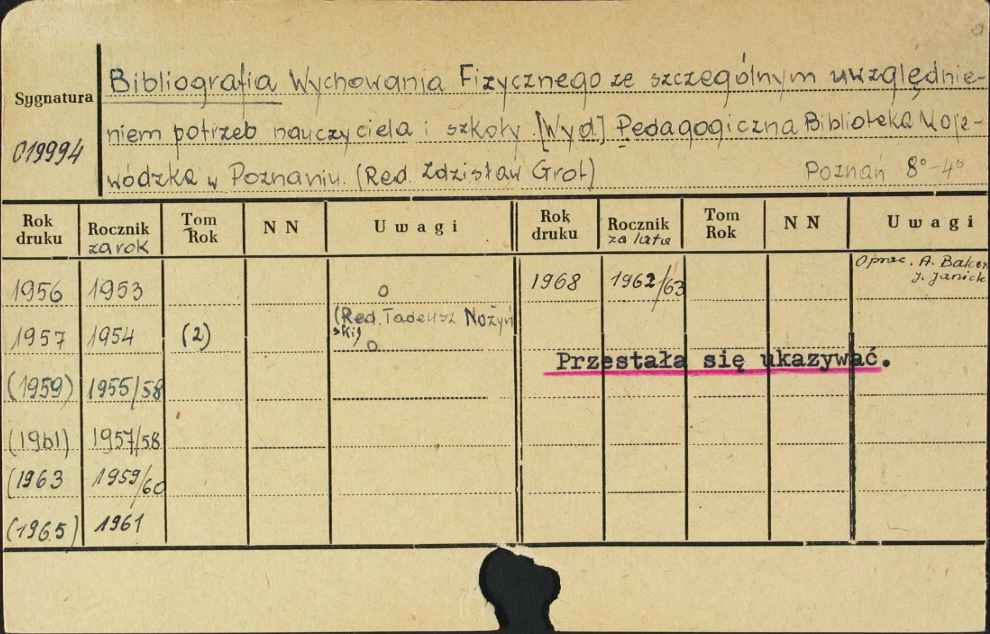 Bibliografia Wychowania Fizycznego ze szczególnym uwzględnie-
Sygnatura
niem potrzeb nauczyciela i szkoły. [Wyd.] Pedagogiczna Biblioteka Woje-
019994
wódzka w Poznaniu. (Red. Zdzisław Grot) Poznań 8°-4°
Rok druku Rocznik za rok Tom Rok NN Uwagi Rok druku Rocznik za lata Tom Rok NN Uwagi
1956 1953 o 1968 1962/63 Oprac. A. Baken J. Janick
1957 1954 (2) (Red. Tadeusz Nożyń
ski) o
Przestała się ukazywać.
(1959) 1955/58
(1961) 1957/58
(1963 1959/60
(1965) 1961